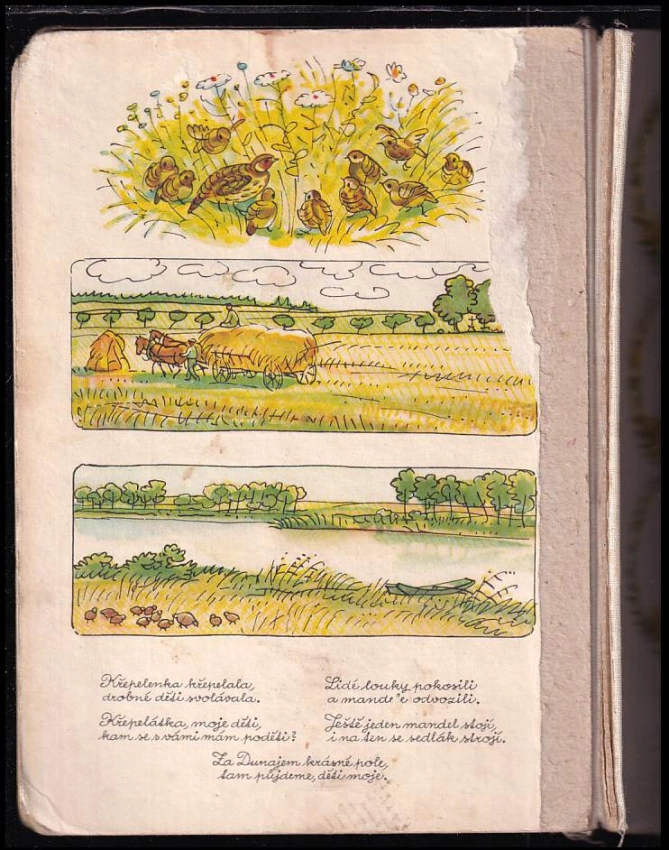 Křepelenka křepelala,
drobné děti svolávala.
Křepelátka, moje děti,
kam se s vámi mám poděti?
Lidé louky pokosili
a mande e odvozili.
Ještě jeden mandel stojí,
i na ten se sedlák strojí.
Za Dunajem krásné pole,
tam půjdeme, děti moje.